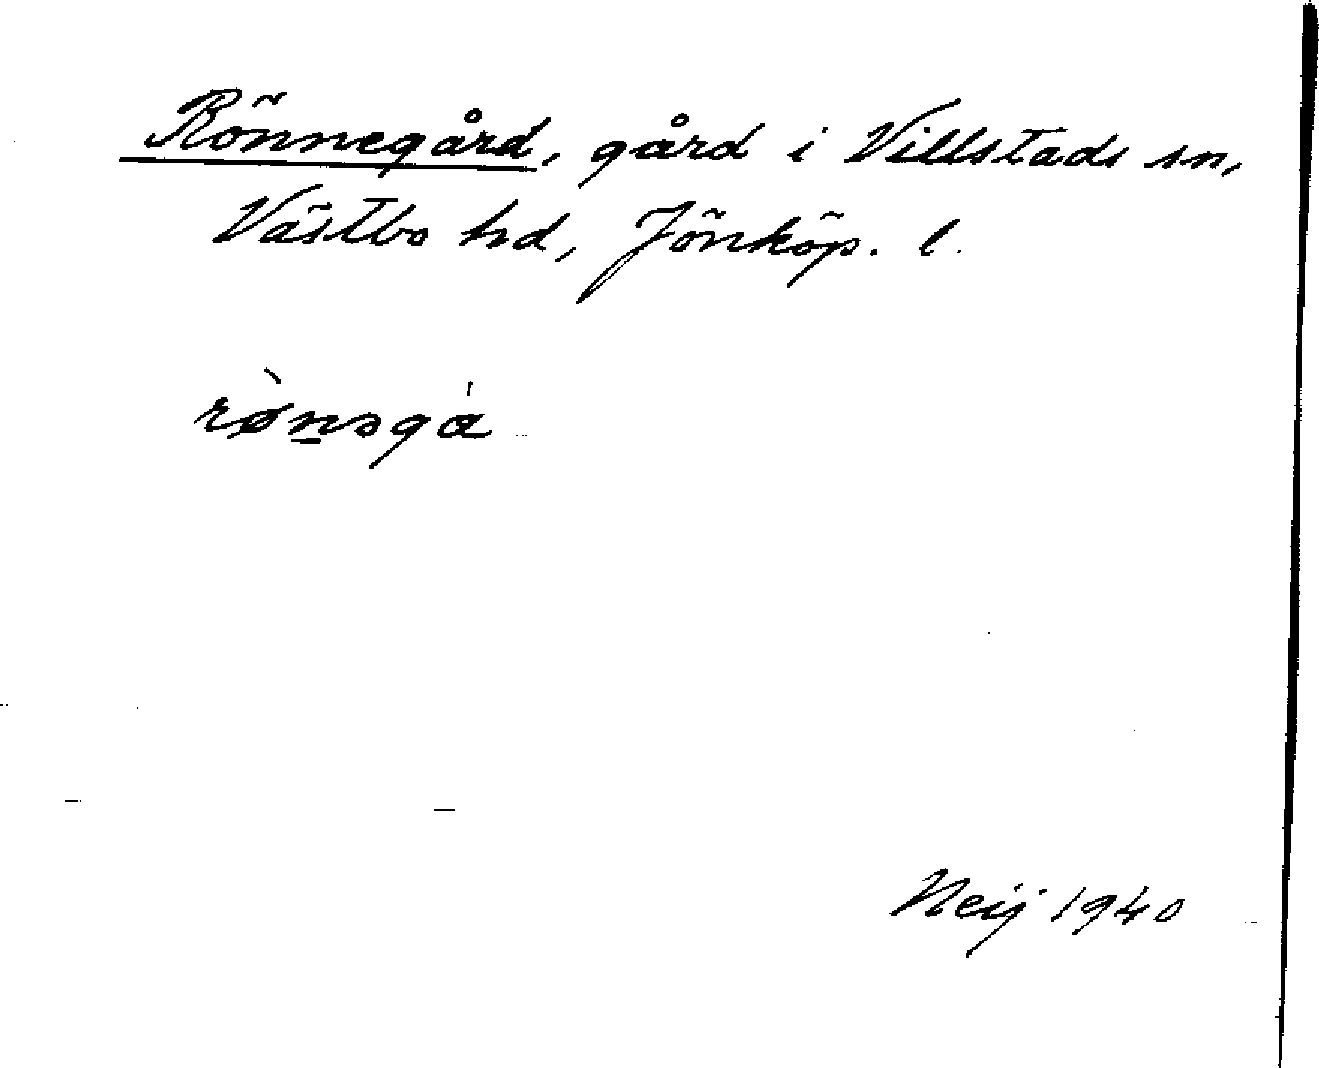 Rönnegård, gård i Villstads sn,
Västbo hd, Jönköp. l.
rø̀n̲əgá
Neij 1940